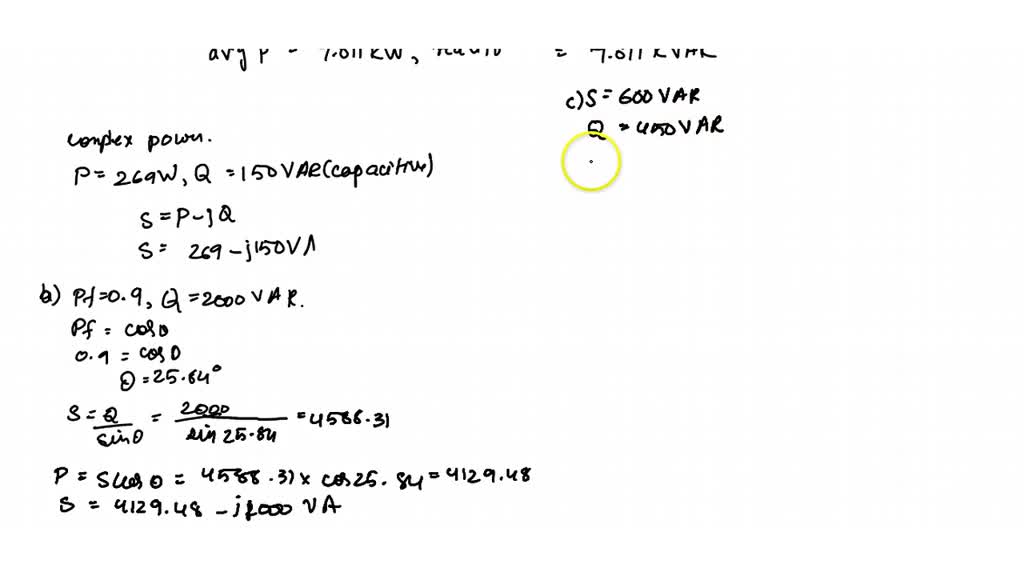 avg P = 7.011 kW, = 7.011 kVAR
c) S = 600 VAR
Q = 450 VAR
complex power.
P = 269W, Q = 150 VAR (capacitive)
S = P - jQ
S = 269 - j150 VA
b) Pf = 0.9, Q = 2000 VAR.
Pf = cosθ
0.9 = cosθ
θ = 25.84°
S = Q/sinθ = 2000/sin 25.84 = 4588.31
P = S cosθ = 4588.31 x cos 25.84 = 4129.48
S = 4129.48 - j2000 VA